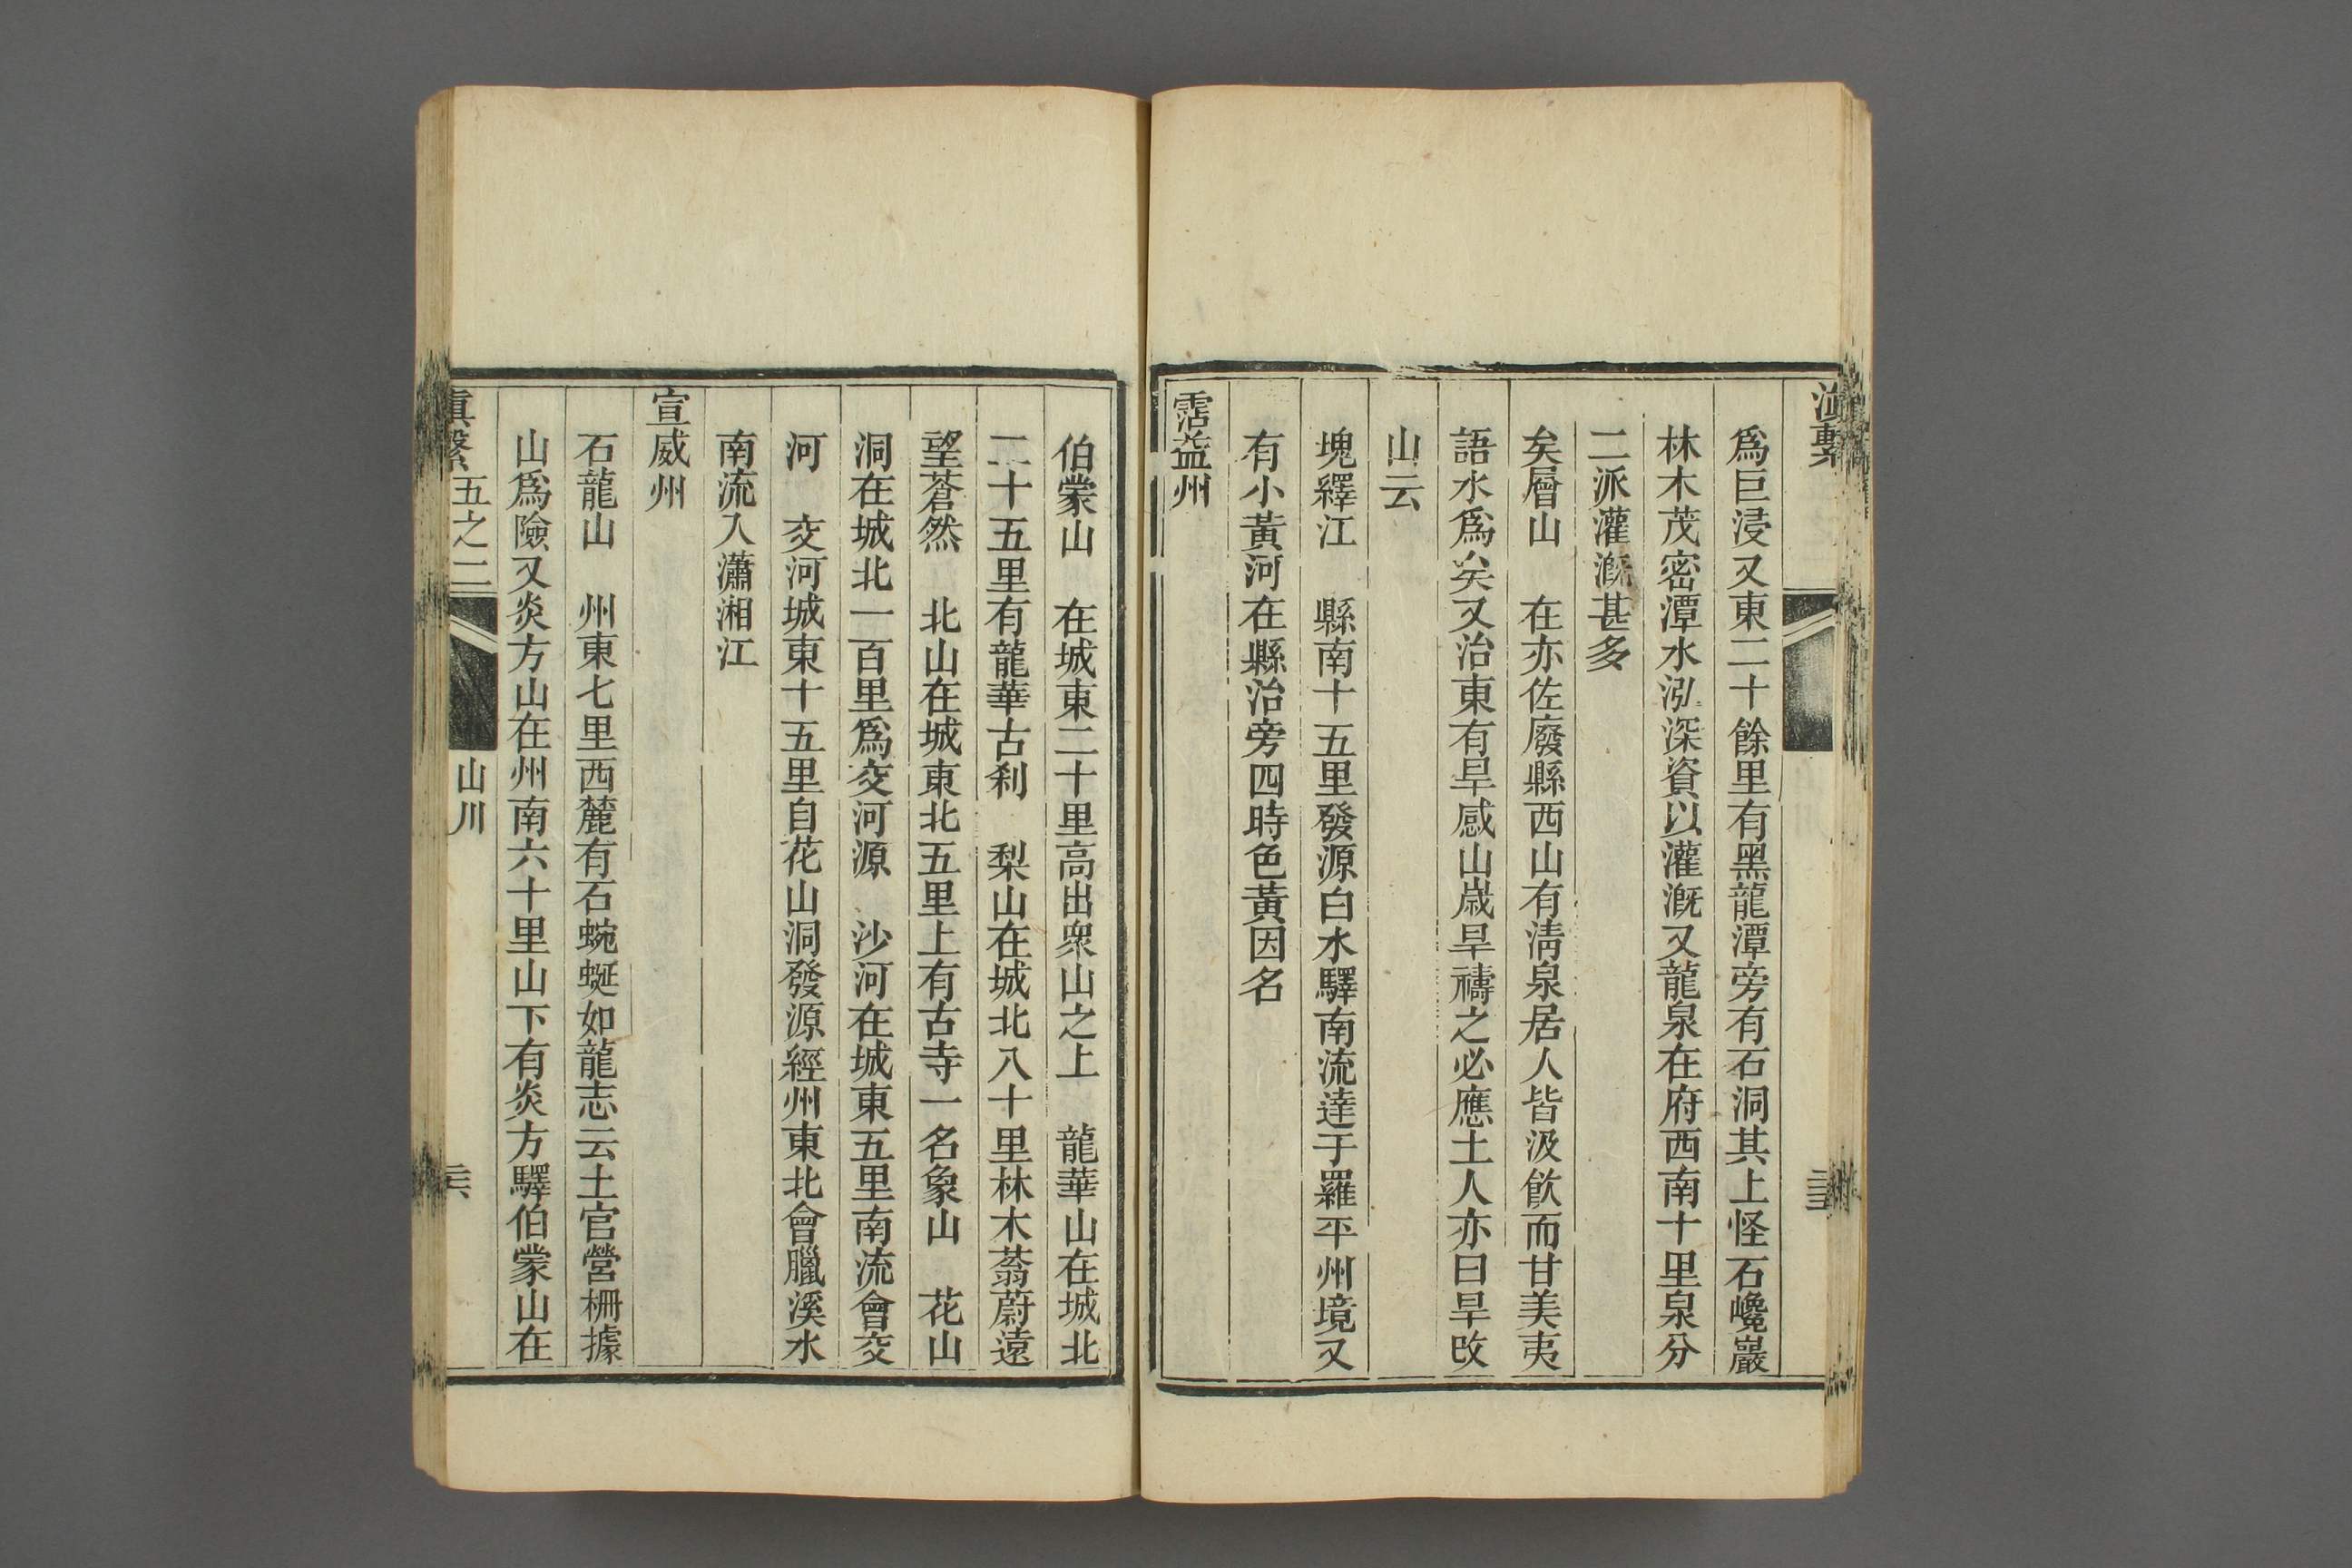 爲巨浸又東二十餘里有黑龍潭旁有石洞其上怪石巉巖
林木茂密潭水泓深資以灌漑又龍泉在府西南十里泉分
二派灌漑甚多
矣層山　在亦佐廢縣西山有淸泉居人皆汲飮而甘美夷
語水爲矣又治東有旱感山歲旱禱之必應土人亦曰旱改
山云
塊繹江　縣南十五里發源白水驛南流達于羅平州境又
有小黃河在縣治旁四時色黃因名
霑益州
伯蒙山　在城東二十里高出衆山之上　龍華山在城北
二十五里有龍華古刹　梨山在城北八十里林木蓊蔚遠
望蒼然　北山在城東北五里上有古寺一名象山　花山
洞在城北一百里爲交河源　沙河在城東五里南流會交
河　交河城東十五里自花山洞發源經州東北會臘溪水
南流入瀟湘江
宣威州
石龍山　州東七里西麓有石蜿蜒如龍志云土官營柵據
山爲險又炎方山在州南六十里山下有炎方驛伯蒙山在
滇繫　五之二　山川